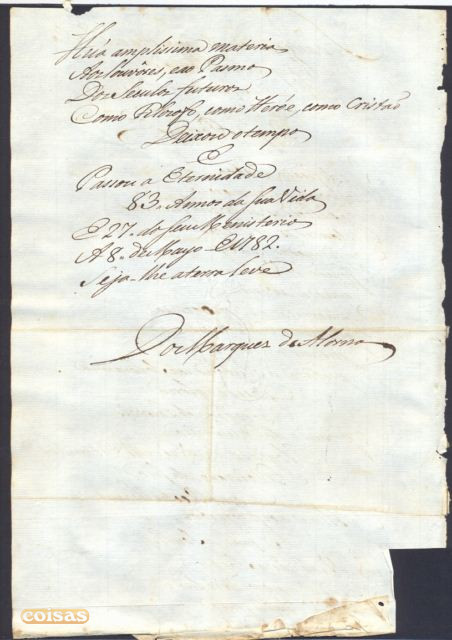 Hũa amplissima materia
Aos Louvores, e ao Pasmo
Dos Seculos futuros
Como Filozofo, como Heróe, como Cristaõ
Deixou o tempo
E
Passou á Eternidade
83. Annos da sua Vida
E 27. do seu Menisterio
A 8. de Mayo E 1782.
Seja-lhe a terra leve
Do Marquez de Alorna
coisas